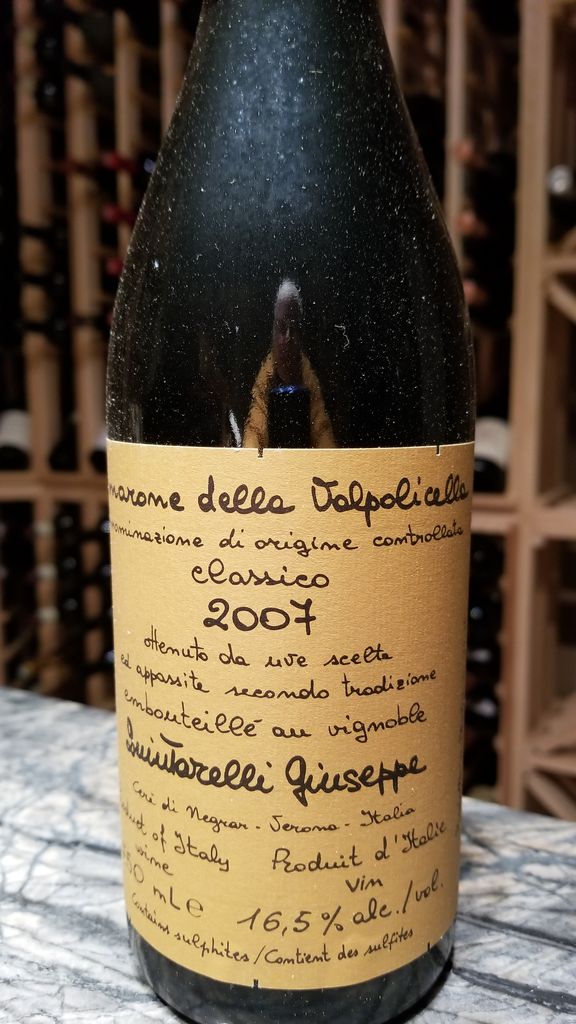 marone della Valpolicella
nominazione di origine controllata
classico
2007
ottenuto da uve scelte
ed appassite secondo tradizione
embouteillé au vignoble
Quintarelli Giuseppe
Cerè di Negrar - Verona - Italia
duct of Italy Produit d'Italie
wine vin
50 mL e 16,5% alc./vol.
Contains sulphites/Contient des sulfites